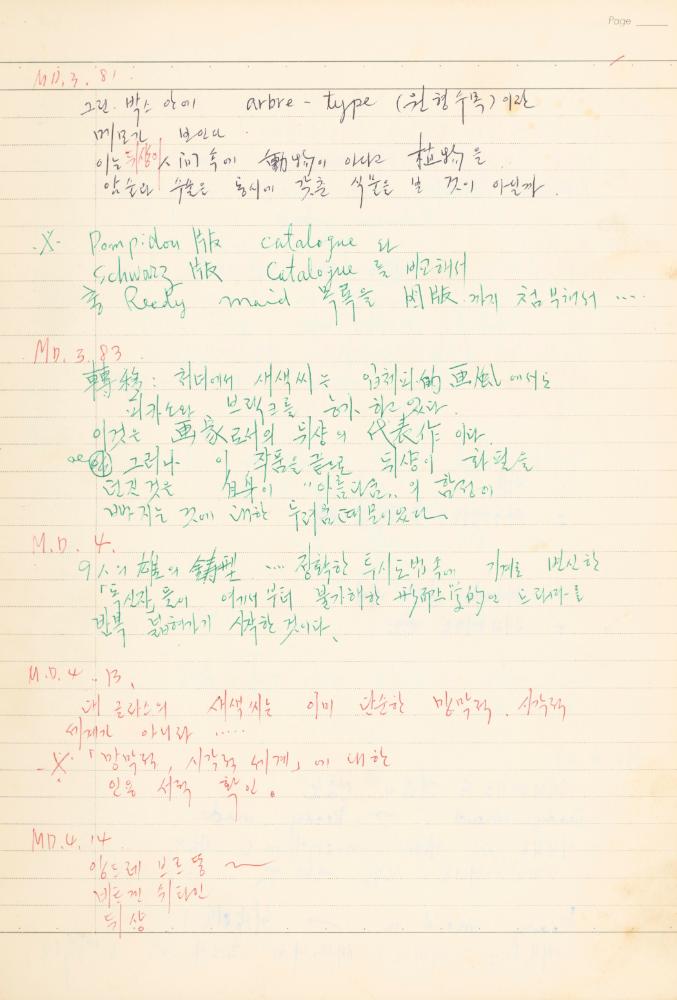 Page
MD. 3. 81.
그린 박스 안에 arbre - type (원형수목) 이란
메모가 보인다.
이는 뒤샹이 人間 속에 動物이 아니고 植物을
암술과 수술을 동시에 갖춘 식물을 본 것이 아닐까.
-X- Pompidou 版 catalogue 와
Schwarz 版 Catalogue 를 비교해서
총 Ready maid 목록을 図版 까지 첨부해서 ....
MD. 3. 83.
轉移 : 처녀에서 새색씨는 입체파的 画風에서도
피카소와 브라크를 능가 하고 있다.
이것은 画家로서의 뒤샹의 代表作 이다.
그러나 이 作品을 끝으로 뒤샹이 화필을
던진 것은 自身이 "아름다움"의 함정에
빠지는 것에 대한 두려움 때문이었다.
M.D. 4.
9人의 雄의 鋳型 .... 정확한 투시도법 속에 기계로 변신한
「독신자」들이 여기서부터 불가해한 形而上学的인 드라마를
반복 넓혀가기 시작한 것이다.
M.D. 4. 13.
대 글라스의 새색씨는 이미 단순한 망막적, 시각적
세계가 아니라 .....
-X- 「망막적, 시각적 세계」에 대한
인용 서적 확인.
MD. 4. 14
앙드레 브르똥
비트겐 쉬타인
뒤샹